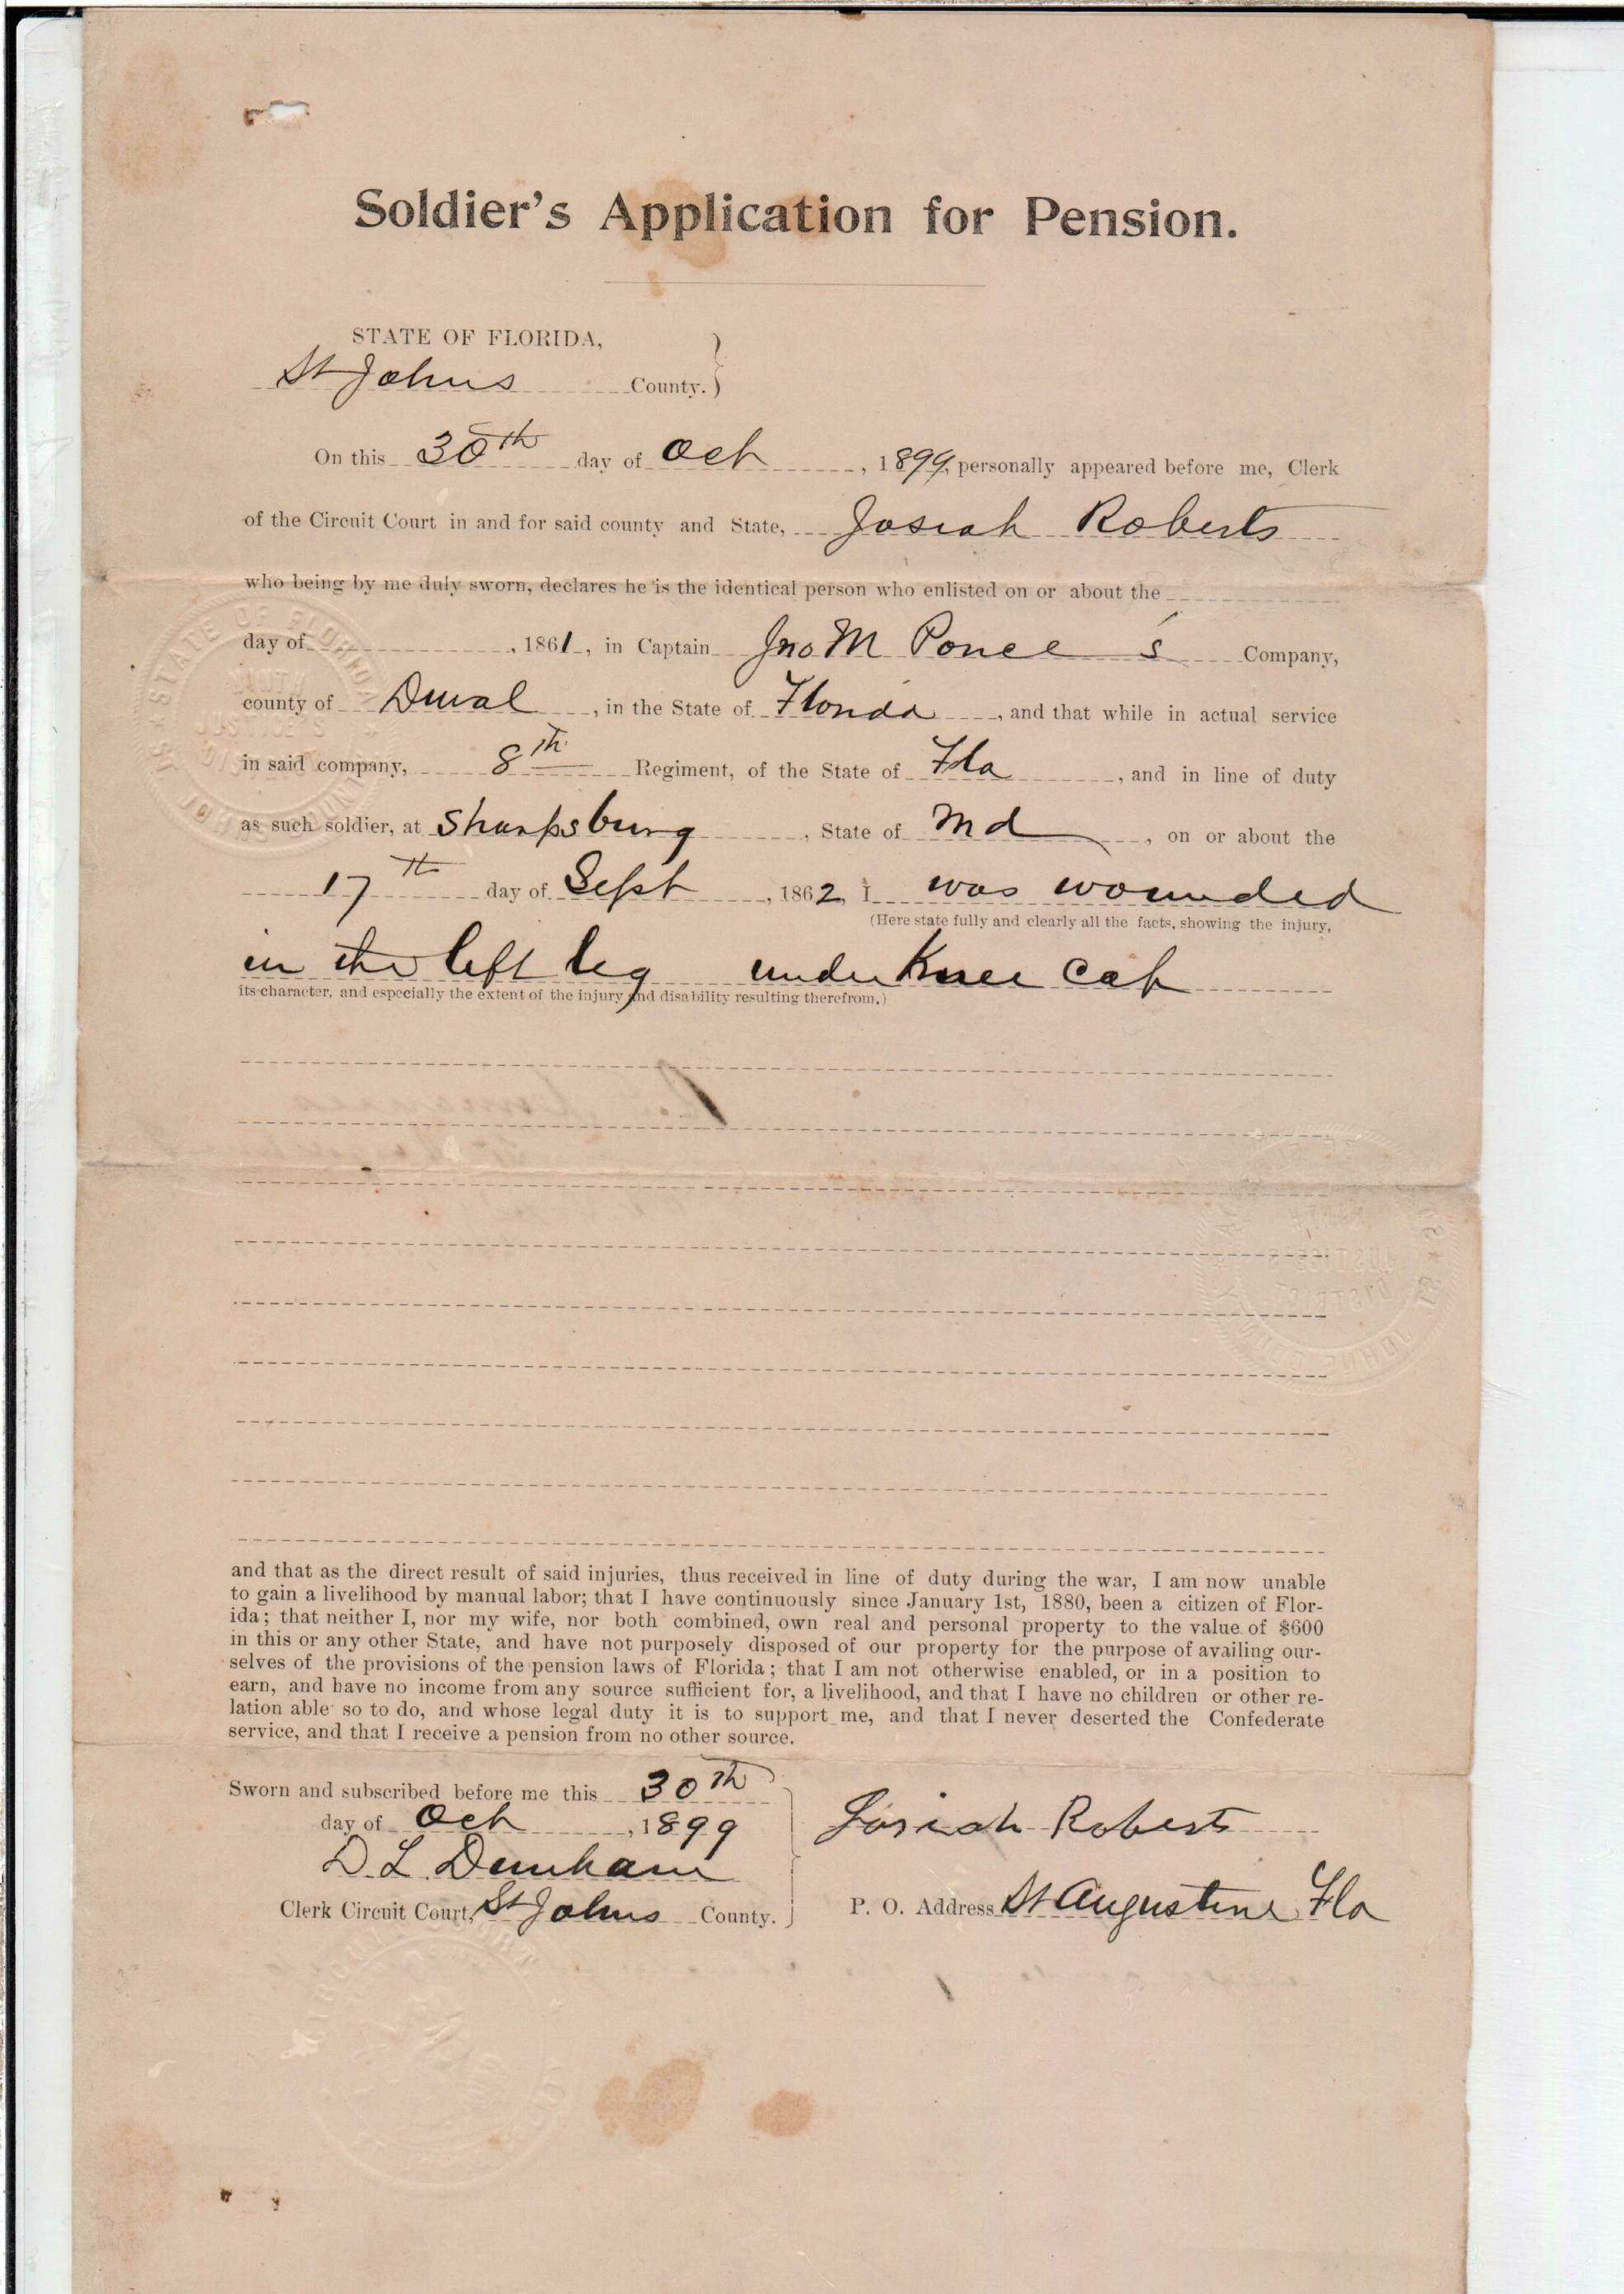 Soldier's Application for Pension.
STATE OF FLORIDA,
St Johns County.
On this 30th day of Oct, 1899, personally appeared before me, Clerk
of the Circuit Court in and for said county and State, Josiah Roberts
who being by me duly sworn, declares he is the identical person who enlisted on or about the
day of , 1861, in Captain Jno M Ponce's Company,
county of Duval, in the State of Florida, and that while in actual service
in said company, 8th Regiment, of the State of Fla, and in line of duty
as such soldier, at Sharpsburg, State of Md, on or about the
17th day of Sept, 1862, I was wounded
(Here state fully and clearly all the facts, showing the injury,
in the left leg under Knee Cap
its character, and especially the extent of the injury and disability resulting therefrom.)
and that as the direct result of said injuries, thus received in line of duty during the war, I am now unable
to gain a livelihood by manual labor; that I have continuously since January 1st, 1880, been a citizen of Flor-
ida; that neither I, nor my wife, nor both combined, own real and personal property to the value of $600
in this or any other State, and have not purposely disposed of our property for the purpose of availing our-
selves of the provisions of the pension laws of Florida; that I am not otherwise enabled, or in a position to
earn, and have no income from any source sufficient for, a livelihood, and that I have no children or other re-
lation able so to do, and whose legal duty it is to support me, and that I never deserted the Confederate
service, and that I receive a pension from no other source.
Sworn and subscribed before me this 30th
day of Oct, 1899
D L Dunham
Clerk Circuit Court, St Johns County.
Josiah Roberts
P. O. Address St Augustine Fla